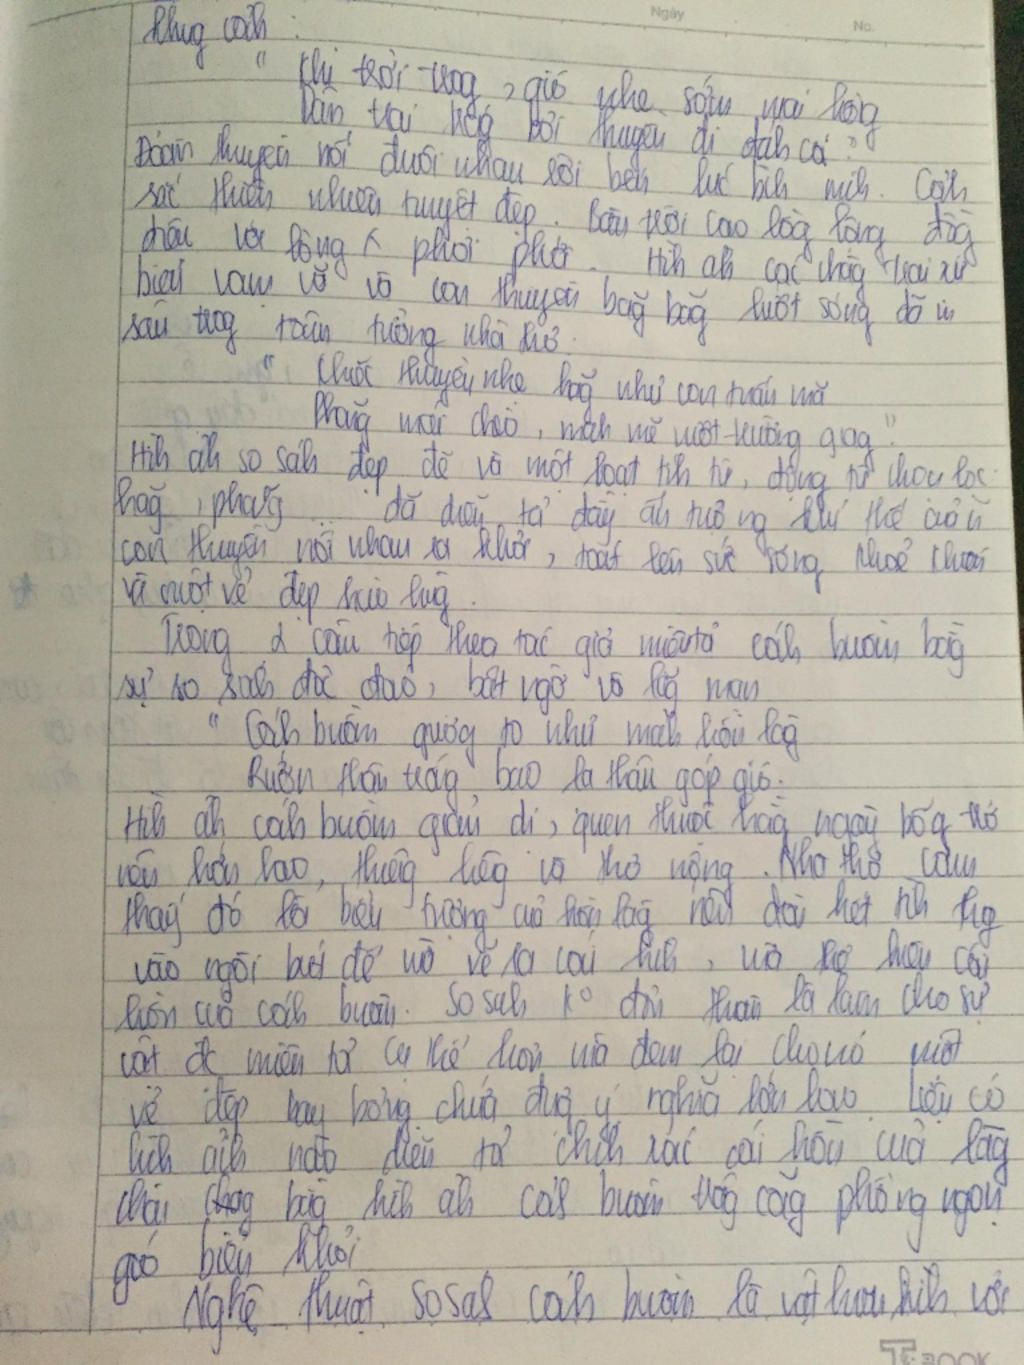 Ngày
No.
khug cảnh :
" Khi trời trog, gió nhẹ sớm mai hồng
Dân trai bơi thuyền đi đáh cá"
Đoàn thuyền nối đuôi nhau rời bến lúc bìh mih. Cảh
sắc thiên nhiên tuyệt đẹp. Bầu trời cao lồg lộng
với lòng phơi phới. Hìh ảh các chàg trai xứ
biển vạm vỡ và con thuyền băg băg lướt sóng đã in
sâu trog tâm tưởng nhà thơ.
" Chiếc thuyền nhẹ hăg như con tuấn mã
Phăg mái chèo, mạh mẽ vượt trường giag"
Hìh ảh so sáh đẹp đẽ và một loạt tíh từ, động từ chọn lọc:
hăg, phăg đã diễn tả đầy ấn tượng khí thế của
con thuyền nối nhau ra khơi, toát lên sức sống khoẻ khoắn
và một vẻ đẹp hào hùg.
Trong 2 câu tiếp theo tác giả miêu tả cáh buồm bằg
sự so sáh độc đáo, bất ngờ và lãg mạn
" Cáh buồm giương to như mảh hồn làg
Rướn thân trắg bao la thâu góp gió.
Hìh ảh cáh buồm giản dị, quen thuộc hàg ngày bỗg trở
nên lớn lao, thiêg liêg và thơ mộng. Nhà thơ cảm
thấy đó là biểu tượng của hồn làg nên dồn hết tìh
vào ngòi bút để vừa vẽ ra cái hìh, vừa
hồn của cáh buồm. So sáh k° đơn thuần là làm cho sự
vật đc miêu tả cụ thể hơn mà đem lại cho nó một
vẻ đẹp bay bổng chứa đựg ý nghĩa lớn lao. Liệu có
hìh ảh nào diễn tả chíh xác cái hồn của làg
chài bằg hìh ảh cáh buồm trắg căg phồng ngọn
gió biển khơi
Nghệ thuật so sáh cáh buồm là vật hữu hìh với